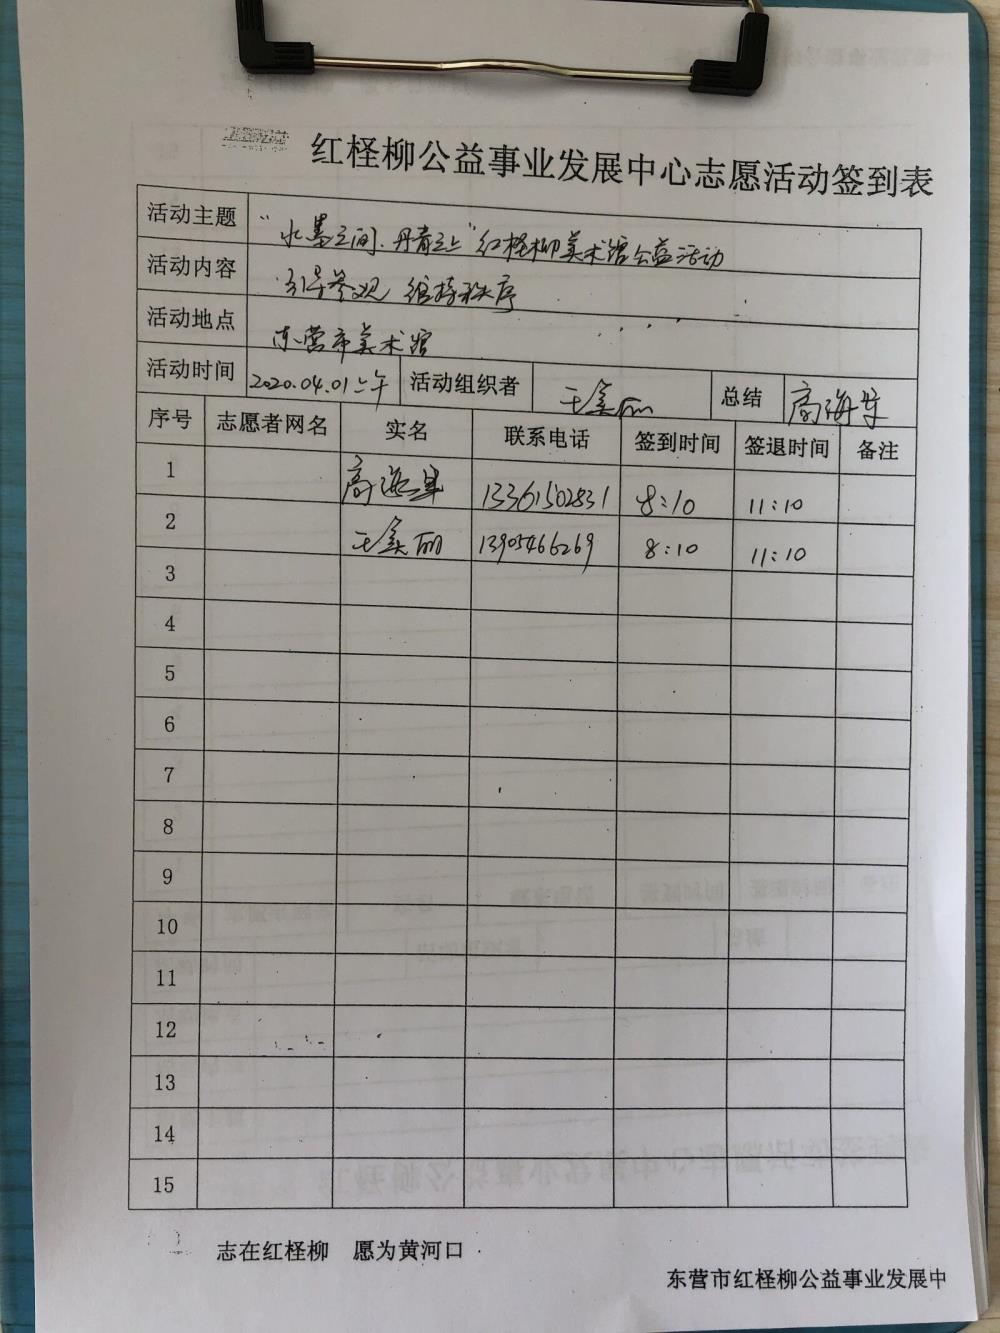 红柽柳公益事业发展中心志愿活动签到表
活动主题 "水墨之间、丹青之上"红柽柳美术馆公益活动
活动内容 引导参观 维持秩序
活动地点 东营市美术馆
活动时间 2020.04.01上午 活动组织者 王美丽 总结 高海军
序号 志愿者网名 实名 联系电话 签到时间 签退时间 备注
1 高海军 13361502831 8:10 11:10
2 王美丽 13905466269 8:10 11:10
3
4
5
6
7
8
9
10
11
12
13
14
15
志在红柽柳 愿为黄河口
东营市红柽柳公益事业发展中